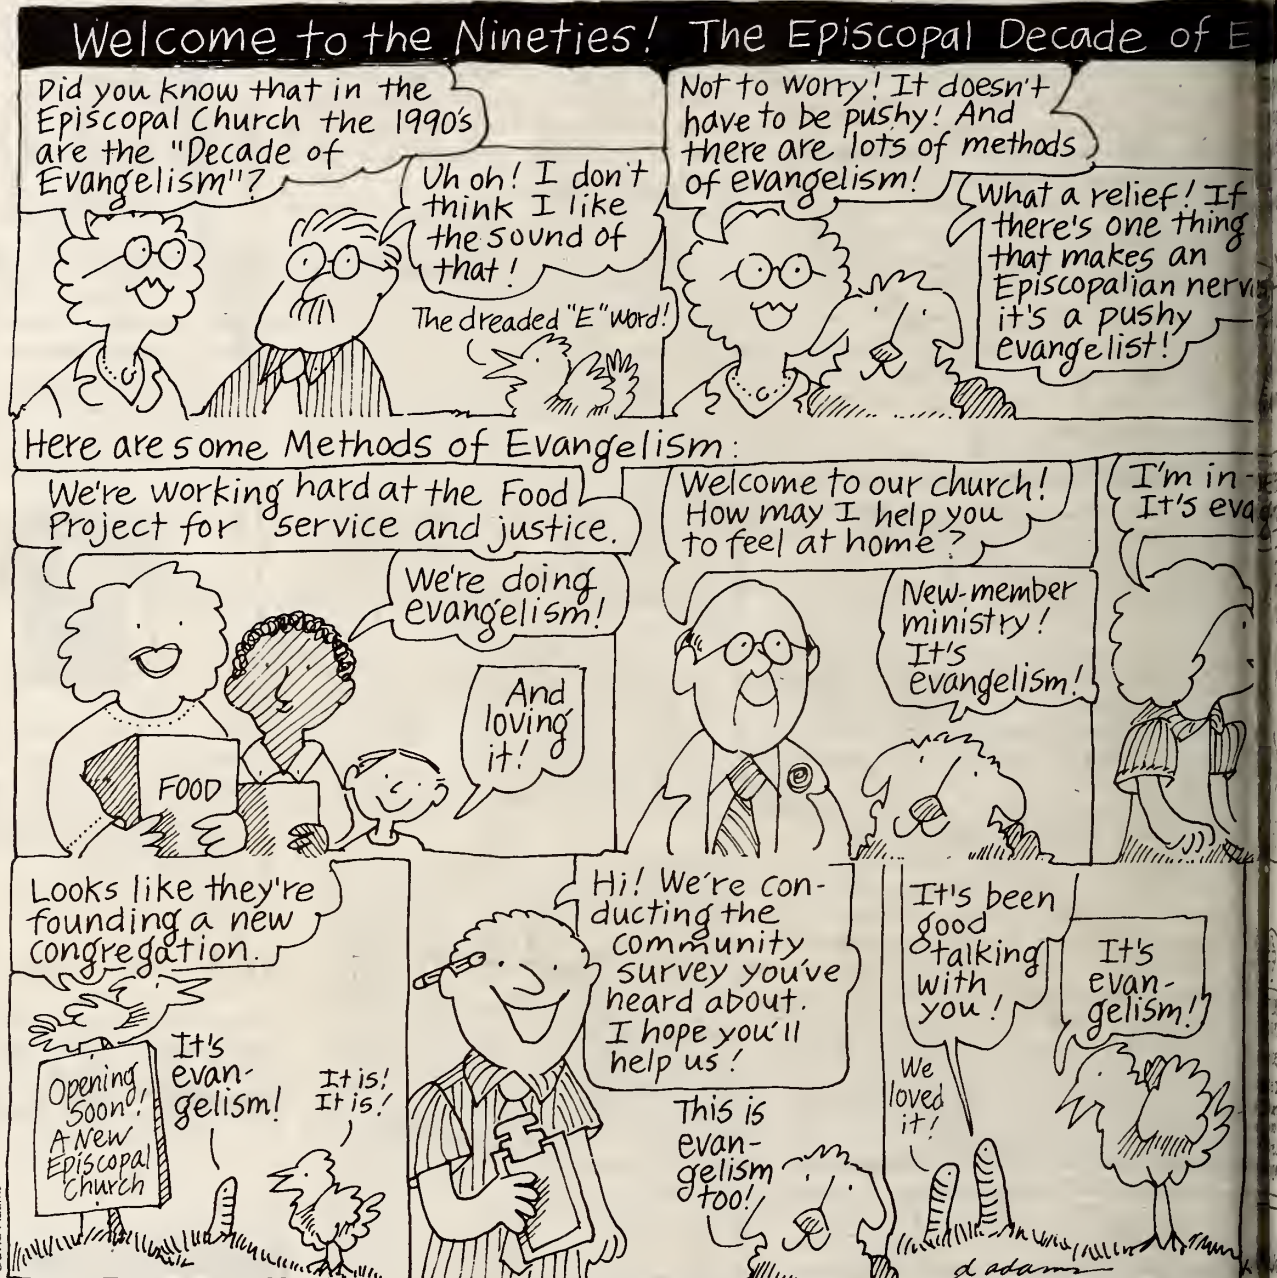 Welcome to the Nineties! The Episcopal Decade of E
Did you know that in the
Episcopal Church the 1990's
are the "Decade of
Evangelism"?
Uh oh! I don't
think I like
the sound of
that!
The dreaded "E" word!
Not to worry! It doesn't
have to be pushy! And
there are lots of methods
of evangelism!
What a relief! If
there's one thing
that makes an
Episcopalian nerv
it's a pushy
evangelist!
Here are some Methods of Evangelism:
We're working hard at the Food
Project for service and justice.
We're doing
evangelism!
And
loving
it!
FOOD
Welcome to our church!
How may I help you
to feel at home?
New-member
ministry!
It's
evangelism!
I'm in-
It's eva
Looks like they're
founding a new
congregation.
Opening
Soon!
A New
Episcopal
Church
It's
evan-
gelism!
It is!
It is!
Hi! We're con-
ducting the
community
survey you've
heard about.
I hope you'll
help us!
This is
evan-
gelism
too!
It's been
good
talking
with
you!
We
loved
it!
It's
evan-
gelism!
d adams